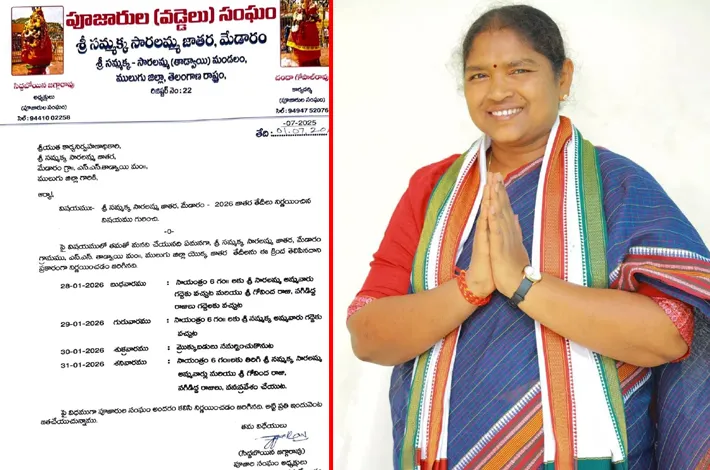 పూజారుల (వడ్డెలు) సంఘం
శ్రీ సమ్మక్క సారలమ్మ జాతర, మేడారం
శ్రీ సమ్మక్క - సారలమ్మ (తాడ్వాయి) మండలం,
ములుగు జిల్లా, తెలంగాణ రాష్ట్రం.
రిజిష్టర్ నెం: 22
సిద్ధబోయిన జగ్గారావు
అధ్యక్షులు
(పూజారుల సంఘం)
సెల్: 94410 02256
చందా గోపాల్‌రావు
కార్యదర్శి
(పూజారుల సంఘం)
సెల్: 94947 52076
-07-2025
తేది: 01.07.2
శ్రీయుత కార్యనిర్వహణాధికారి,
శ్రీ సమ్మక్క సారలమ్మ జాతర,
మేడారం గ్రా॥, ఎస్.ఎస్.తాడ్వాయి మం॥,
ములుగు జిల్లా గారికి,
ఆర్యా,
విషయము:- శ్రీ సమ్మక్క సారలమ్మ జాతర, మేడారం - 2026 జాతర తేదీలు నిర్ణయించిన
విషయము గురించి.
-0-
పై విషయములో తమతో మనవి చేయునది ఏమనగా, శ్రీ సమ్మక్క సారలమ్మ జాతర, మేడారం
గ్రామము, ఎస్.ఎస్. తాడ్వాయి మం॥, ములుగు జిల్లా యొక్క జాతర తేదీలను ఈ క్రింద తెలిపినదాని
ప్రకారంగా నిర్ణయించడం జరిగినది.
28-01-2026 బుధవారము : సాయంత్రం 6 గం॥ లకు శ్రీ సారలమ్మ అమ్మవారు
గద్దెకు వచ్చుట మరియు శ్రీ గోవింద రాజు, పగిడిద్ద
రాజులు గద్దెలకు వచ్చుట
29-01-2026 గురువారము : సాయంత్రం 6 గం॥లకు శ్రీ సమ్మక్క అమ్మవారు గద్దెకు
వచ్చుట
30-01-2026 శుక్రవారము : మ్రొక్కుబడులు సమర్పించుకొనుట
31-01-2026 శనివారము : సాయంత్రం 6 గం॥లకు తిరిగి శ్రీ సమ్మక్క సారలమ్మ
అమ్మవార్లు మరియు శ్రీ గోవింద రాజు,
పగిడిద్ద రాజులు, వనప్రవేశం చేయుట.
పై విధముగా పూజారుల సంఘం అందరం కలిసి నిర్ణయించడం జరిగినది. అట్టి ప్రతి ఇందువెంట
జతచేయుచున్నాము.
తమ విధేయులు
(సిద్ధబోయిన జగ్గారావు)
పూజారి సంఘం అధ్యక్షులు